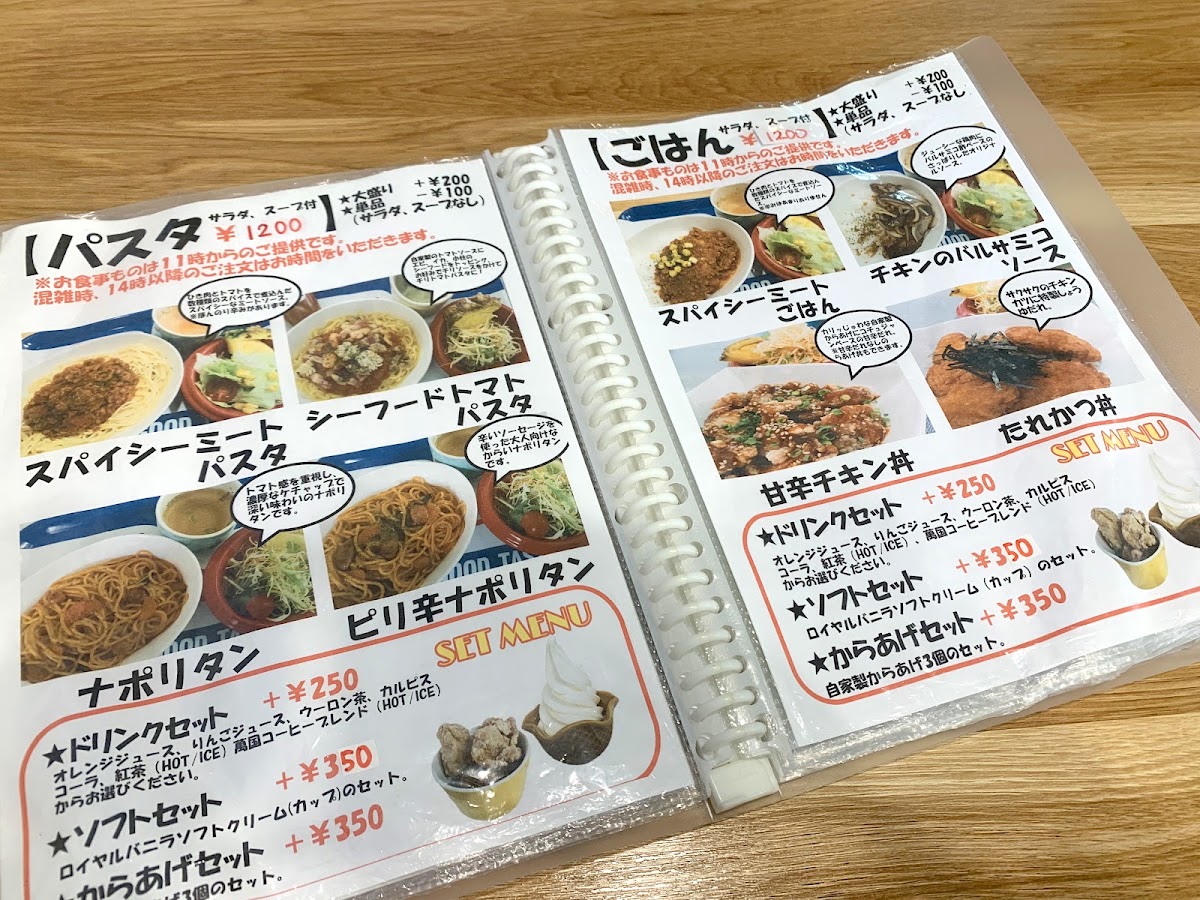 【パスタ サラダ、スープ付 ￥1200】
★大盛り ＋￥200
★単品 −￥100
(サラダ、スープなし)
※お食事ものは11時からのご提供です。
混雑時、14時以降のご注文はお時間をいただきます。
ひき肉とトマトを
数種類のスパイスで煮込んだ
スパイシーなミートソース。
※ほんのり辛みがあります。
スパイシーミート
パスタ
自家製のトマトソースに
エビ、イカ、小柱の
シーフードをトッピング、
お好みでチリソースをかけて
チリトマトパスタに！
シーフードトマト
パスタ
トマト感を重視し、
濃厚なケチャップで
深い味わいのナポリ
タンです。
ナポリタン
辛いソーセージを
使った大人向けな
からいナポリタン
です。
ピリ辛ナポリタン
SET MENU
★ドリンクセット ＋￥250
オレンジジュース、りんごジュース、ウーロン茶、カルピス
コーラ、紅茶（HOT/ICE）萬国コーヒーブレンド（HOT/ICE）
からお選びください。
★ソフトセット ＋￥350
ロイヤルバニラソフトクリーム(カップ)のセット。
★からあげセット ＋￥350
げ3個のセット。
【ごはん サラダ、スープ付 ￥1200】
★大盛り ＋￥200
★単品 −￥100
(サラダ、スープなし)
※お食事ものは11時からのご提供です。
混雑時、14時以降のご注文はお時間をいただきます。
ひき肉とトマトを
数種類のスパイスで煮込ん
だスパイシーなミートソー
ス。
※辛みはあまりありません
スパイシーミート
ごはん
ジューシーな鶏肉に
バルサミコ酢ベースの
さっぱりしたオリジナ
ルソース。
チキンのバルサミコ
ソース
カリっじゅわな自家製
からあげにコチュジャ
ンベースの甘辛だれ。
※甘辛だれなしの
からあげ丼もできます。
甘辛チキン丼
サクサクのチキン
カツに特製しょう
ゆだれ。
たれかつ丼
SET MENU
★ドリンクセット ＋￥250
オレンジジュース、りんごジュース、ウーロン茶、カルピス
コーラ、紅茶（HOT/ICE）、萬国コーヒーブレンド（HOT/ICE）
からお選びください。
★ソフトセット ＋￥350
ロイヤルバニラソフトクリーム(カップ)のセット。
★からあげセット ＋￥350
自家製からあげ3個のセット。